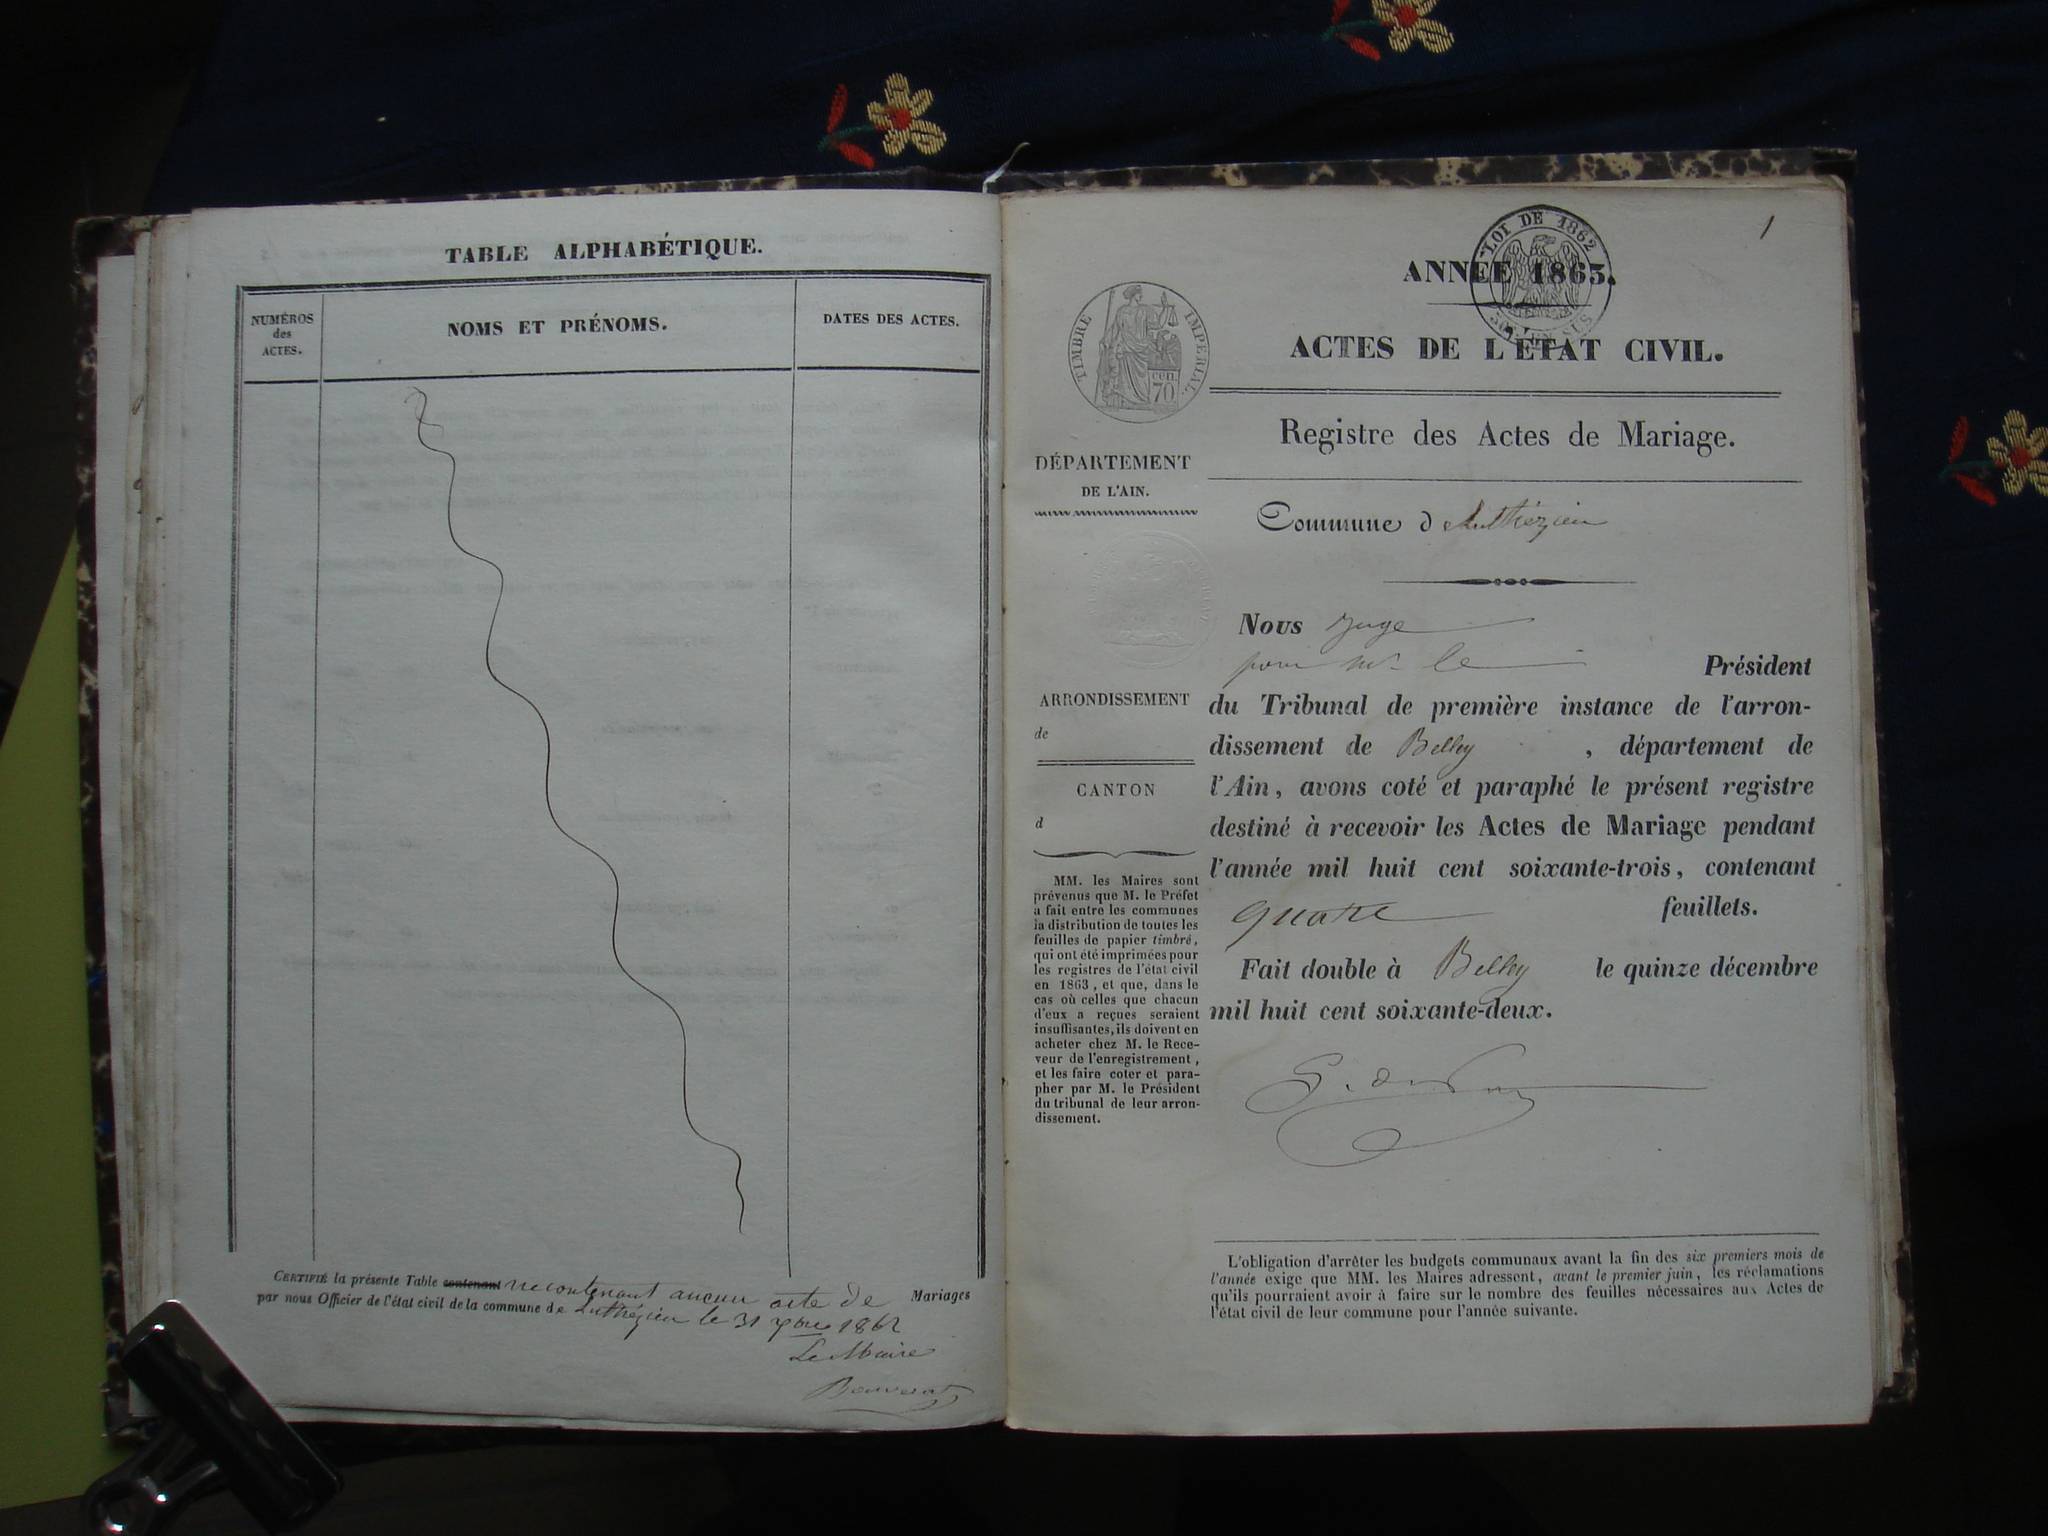 TABLE ALPHABÉTIQUE.
NUMÉROS
des
ACTES.
NOMS ET PRÉNOMS.
DATES DES ACTES.
CERTIFIÉ la présente Table contenant ne contenant aucun acte de Mariages
par nous Officier de l'état civil de la commune de Luthézieu le 31 xbre 1862
Le Maire
1
LOI DE 1862
50 C EN SUS
ANNÉE 1863.
ACTES DE L'ÉTAT CIVIL.
TIMBRE IMPÉRIAL.
70 cen
Registre des Actes de Mariage.
DÉPARTEMENT
DE L'AIN.
Commune d Luthézieu
Nous Juge
pour Mr le Président
ARRONDISSEMENT
de
CANTON
d
du Tribunal de première instance de l'arron-
dissement de Belley , département de
l'Ain, avons coté et paraphé le présent registre
destiné à recevoir les Actes de Mariage pendant
l'année mil huit cent soixante-trois, contenant
quatre feuillets.
Fait double à Belley le quinze décembre
mil huit cent soixante-deux.
MM. les Maires sont
prévenus que M. le Préfet
a fait entre les communes
la distribution de toutes les
feuilles de papier timbré,
qui ont été imprimées pour
les registres de l'état civil
en 1863, et que, dans le
cas où celles que chacun
d'eux a reçues seraient
insuffisantes, ils doivent en
acheter chez M. le Rece-
veur de l'enregistrement,
et les faire coter et para-
pher par M. le Président
du tribunal de leur arron-
dissement.
L'obligation d'arrêter les budgets communaux avant la fin des six premiers mois de
l'année exige que MM. les Maires adressent, avant le premier juin, les réclamations
qu'ils pourraient avoir à faire sur le nombre des feuilles nécessaires aux Actes de
l'état civil de leur commune pour l'année suivante.